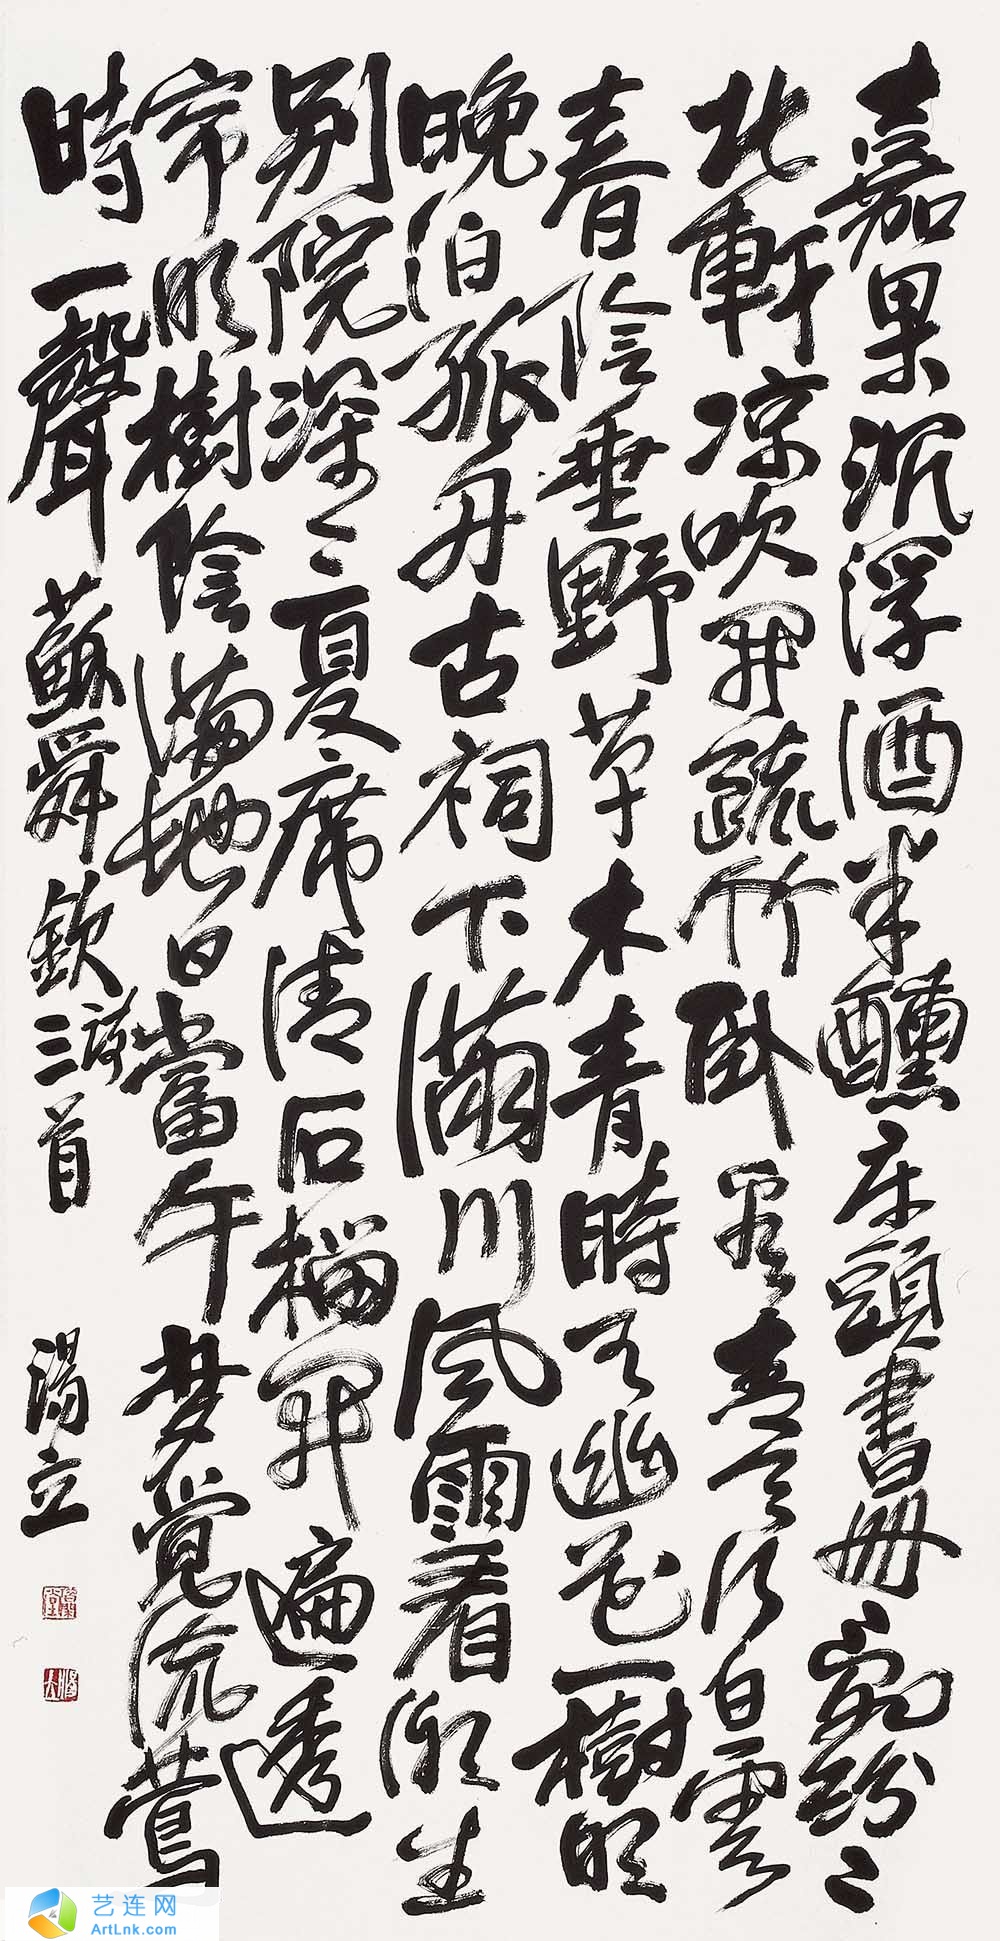 嘉果沉浮酒半醺床頭書冊亂紛〻
北軒凉吹開疏竹卧看青天行白雲
春陰垂野草木青時有幽花一樹明
晚泊孤舟古祠下滿川風雨看潮生
別院深〻夏席清石榴開遍透
帘明樹陰滿地日當午夢覺流鶯
時一聲 蘇舜欽詩三首 湯立
艺连网
ArtLnk.com